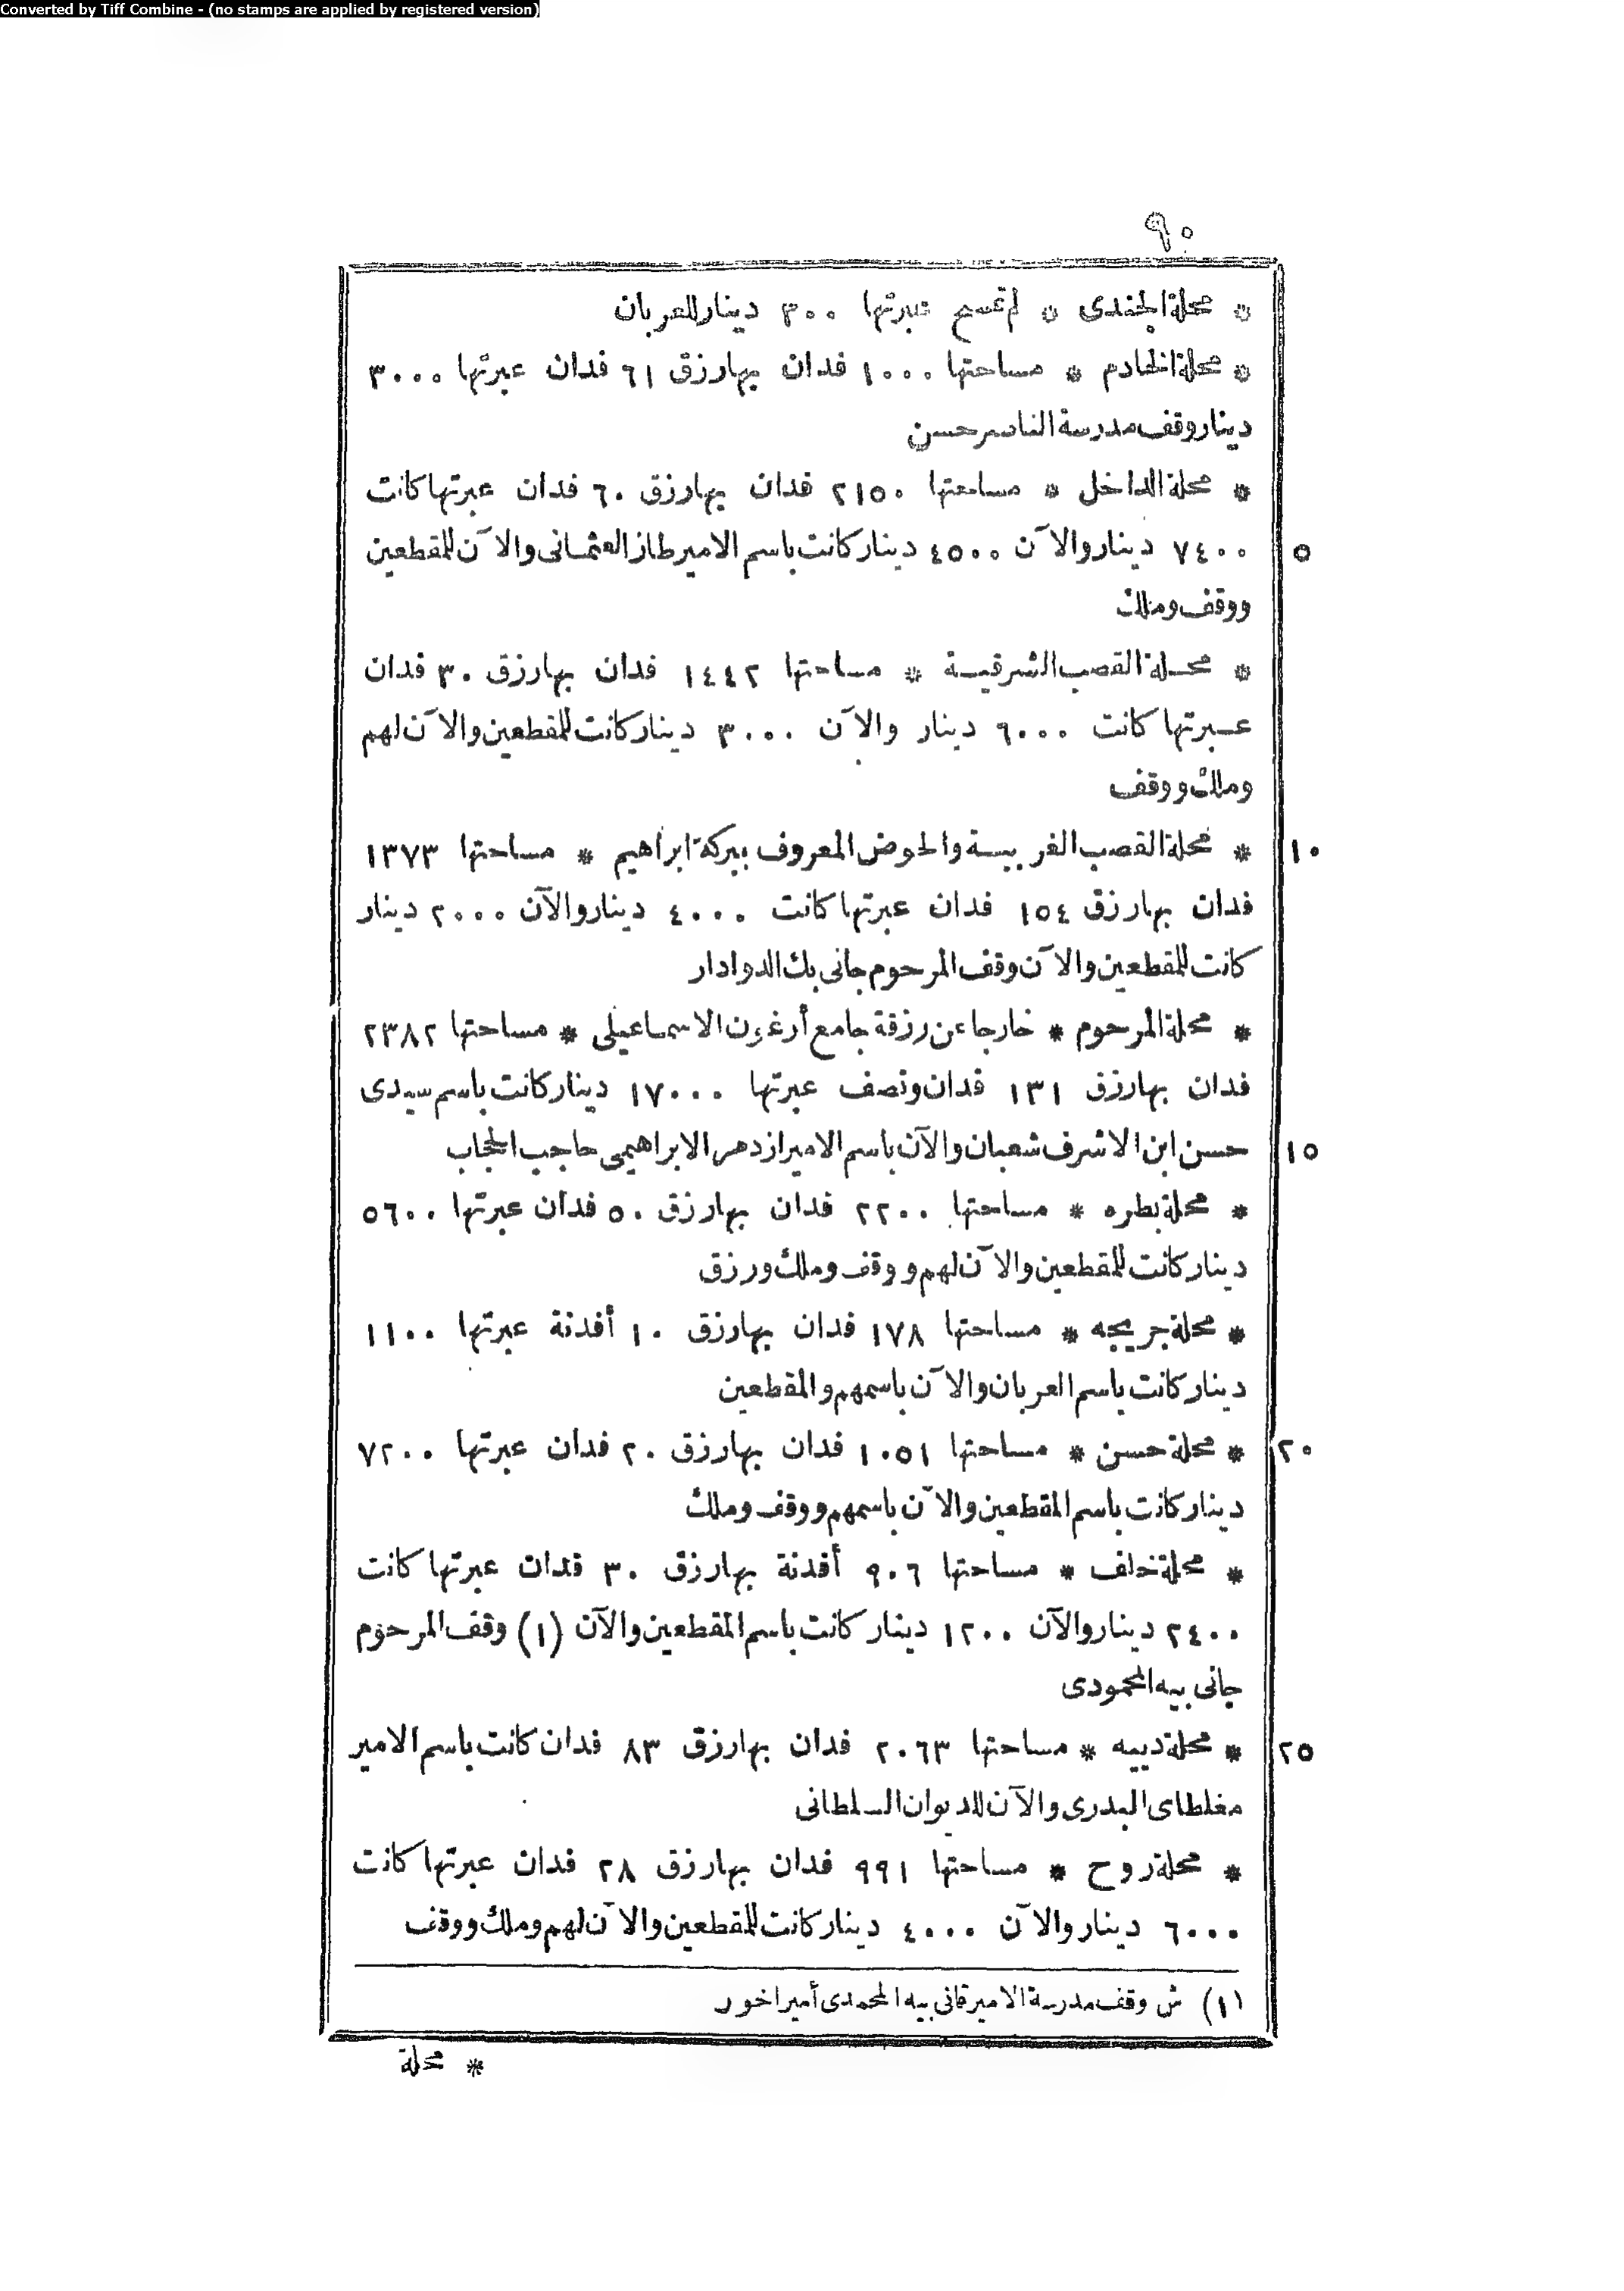 Converted by Tiff Combine - (no stamps are applied by registered version)
٩٠
* محلة الجندى * لم تمسح عبرتها ٣٠٠ دينار للعربان
* محلة الخادم * مساحتها ١٠٠٠ فدان بها رزق ٦١ فدان عبرتها ٣٠٠٠
دينار وقف مدرسة الناصر حسن
* محلة الداخل * مساحتها ٢١٥٠ فدان بها رزق ٦٠ فدان عبرتها كانت
٥ ٧٤٠٠ دينار والآن ٤٥٠٠ دينار كانت باسم الامير طاز العثمانى والآن للمقطعين
ووقف وملك
* محلة القصب الشرقية * مساحتها ١٤٤٢ فدان بها رزق ٣٠ فدان
عبرتها كانت ٦٠٠٠ دينار والآن ٣٠٠٠ دينار كانت للمقطعين والآن لهم
وملك ووقف
١٠ * محلة القصب الغربية والحوض المعروف ببركة ابراهيم * مساحتها ١٣٧٣
فدان بها رزق ١٥٤ فدان عبرتها كانت ٤٠٠٠ دينار والآن ٢٠٠٠ دينار
كانت للمقطعين والآن وقف المرحوم جانى بك الدوادار
* محلة المرحوم * خارجا عن رزقة جامع أرغون الاسماعيلى * مساحتها ٢٣٨٢
فدان بها رزق ١٣١ فدان ونصف عبرتها ١٧٠٠٠ دينار كانت باسم سيدى
١٥ حسن ابن الاشرف شعبان والآن باسم الامير ازدمر الابراهيمى حاجب الحجاب
* محلة بطره * مساحتها ٢٢٠٠ فدان بها رزق ٥٠ فدان عبرتها ٥٦٠٠
دينار كانت للمقطعين والآن لهم ووقف وملك ورزق
* محلة جريجه * مساحتها ١٧٨ فدان بها رزق ١٠ أفدنة عبرتها ١١٠٠
دينار كانت باسم العربان والآن باسمهم والمقطعين
٢٠ * محلة حسن * مساحتها ١٠٥١ فدان بها رزق ٢٠ فدان عبرتها ٧٢٠٠
دينار كانت باسم المقطعين والآن باسمهم ووقف وملك
* محلة خلف * مساحتها ٩٠٦ أفدنة بها رزق ٣٠ فدان عبرتها كانت
٢٤٠٠ دينار والآن ١٢٠٠ دينار كانت باسم المقطعين والآن (١) وقف المرحوم
جانى بيه المحمودى
٢٥ * محلة دييه * مساحتها ٢٠٦٣ فدان بها رزق ٨٣ فدان كانت باسم الامير
مغلطاى البدرى والآن للديوان السلطانى
* محلة روح * مساحتها ٩٩١ فدان بها رزق ٢٨ فدان عبرتها كانت
٦٠٠٠ دينار والآن ٤٠٠٠ دينار كانت للمقطعين والآن لهم وملك ووقف
(١) ش وقف مدرسة الامير قانى بيه المحمدى أمير اخور
* محلة